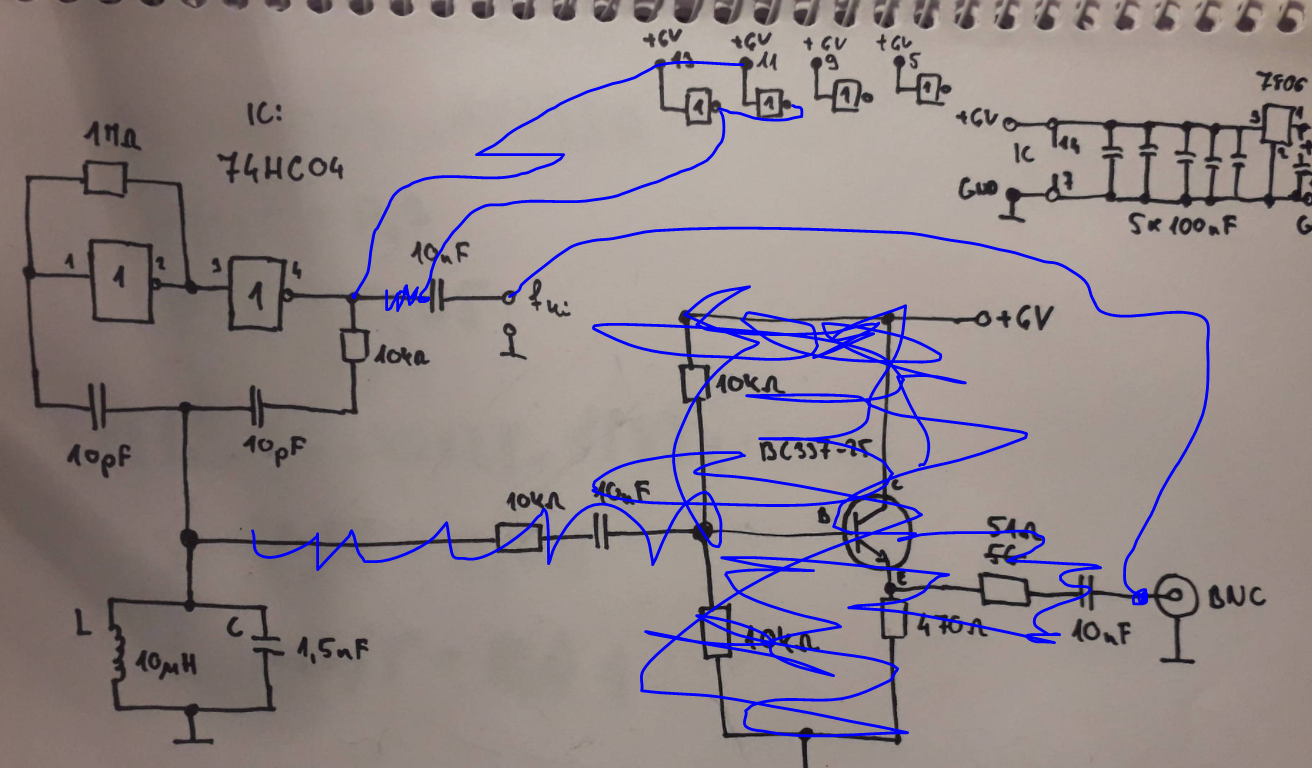 +6V +6V +6V +6V
13 11 9 5
1 1 1 1
7806
IC:
74HC04
1MΩ
+6V 14 3 1
IC 2
GND 7
5x100nF
G
1 1 2 3 1 4
10nF
10kΩ
+6V
10kΩ
10pF 10pF
BC337-25
10kΩ 10nF
C
B
E
51Ω
56
BNC
L 10µH C 1,5nF
10kΩ 470Ω 10nF